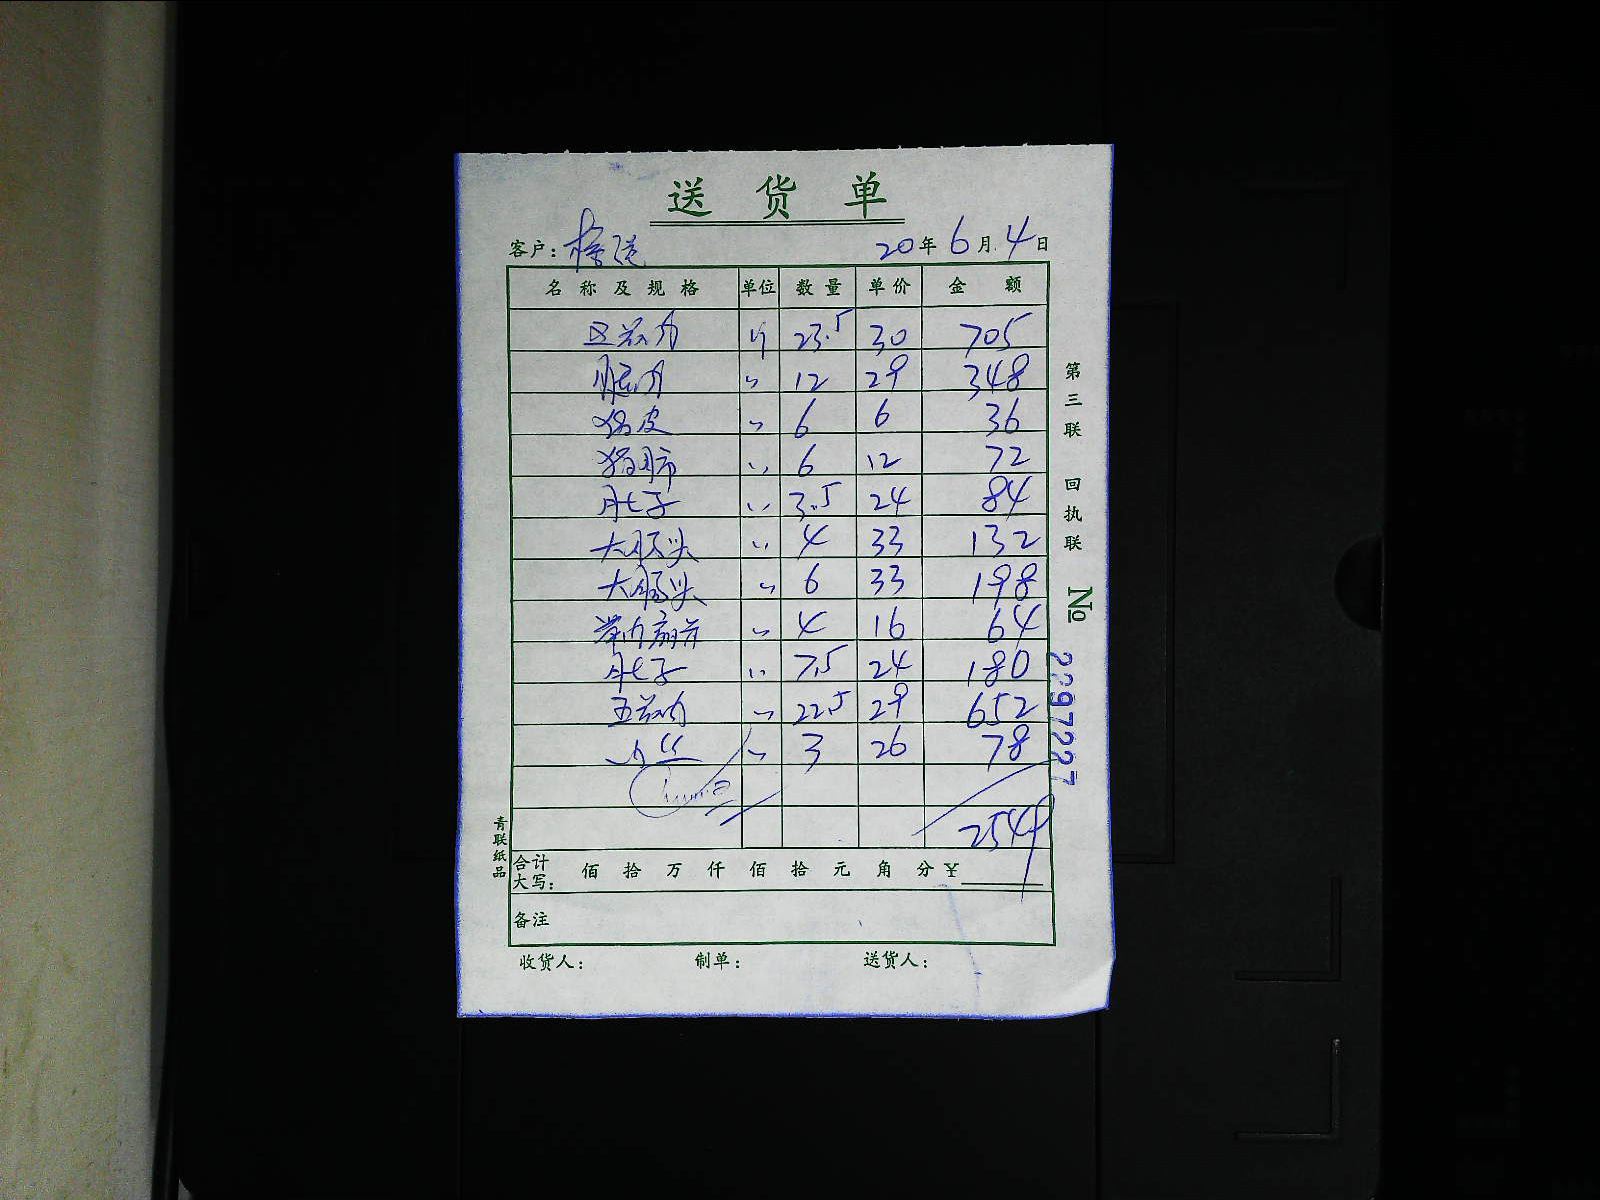 送货单
客户： 20年6月4日
名称及规格 单位 数量 单价 金额
斤 23.5 30 705
〃 12 29 348
猪皮 〃 6 6 36
猪肺 〃 6 12 72
肚子 〃 3.5 24 84
大肠头 〃 4 33 132
大肠头 〃 6 33 198
〃 4 16 64
肚子 〃 7.5 24 180
五花肉 〃 22.5 29 652
肉丝 〃 3 26 78
2549
合计大写： 佰 拾 万 仟 佰 拾 元 角 分 ¥
备注
收货人： 制单： 送货人：
第三联 回执联 No 2297227
青联纸品